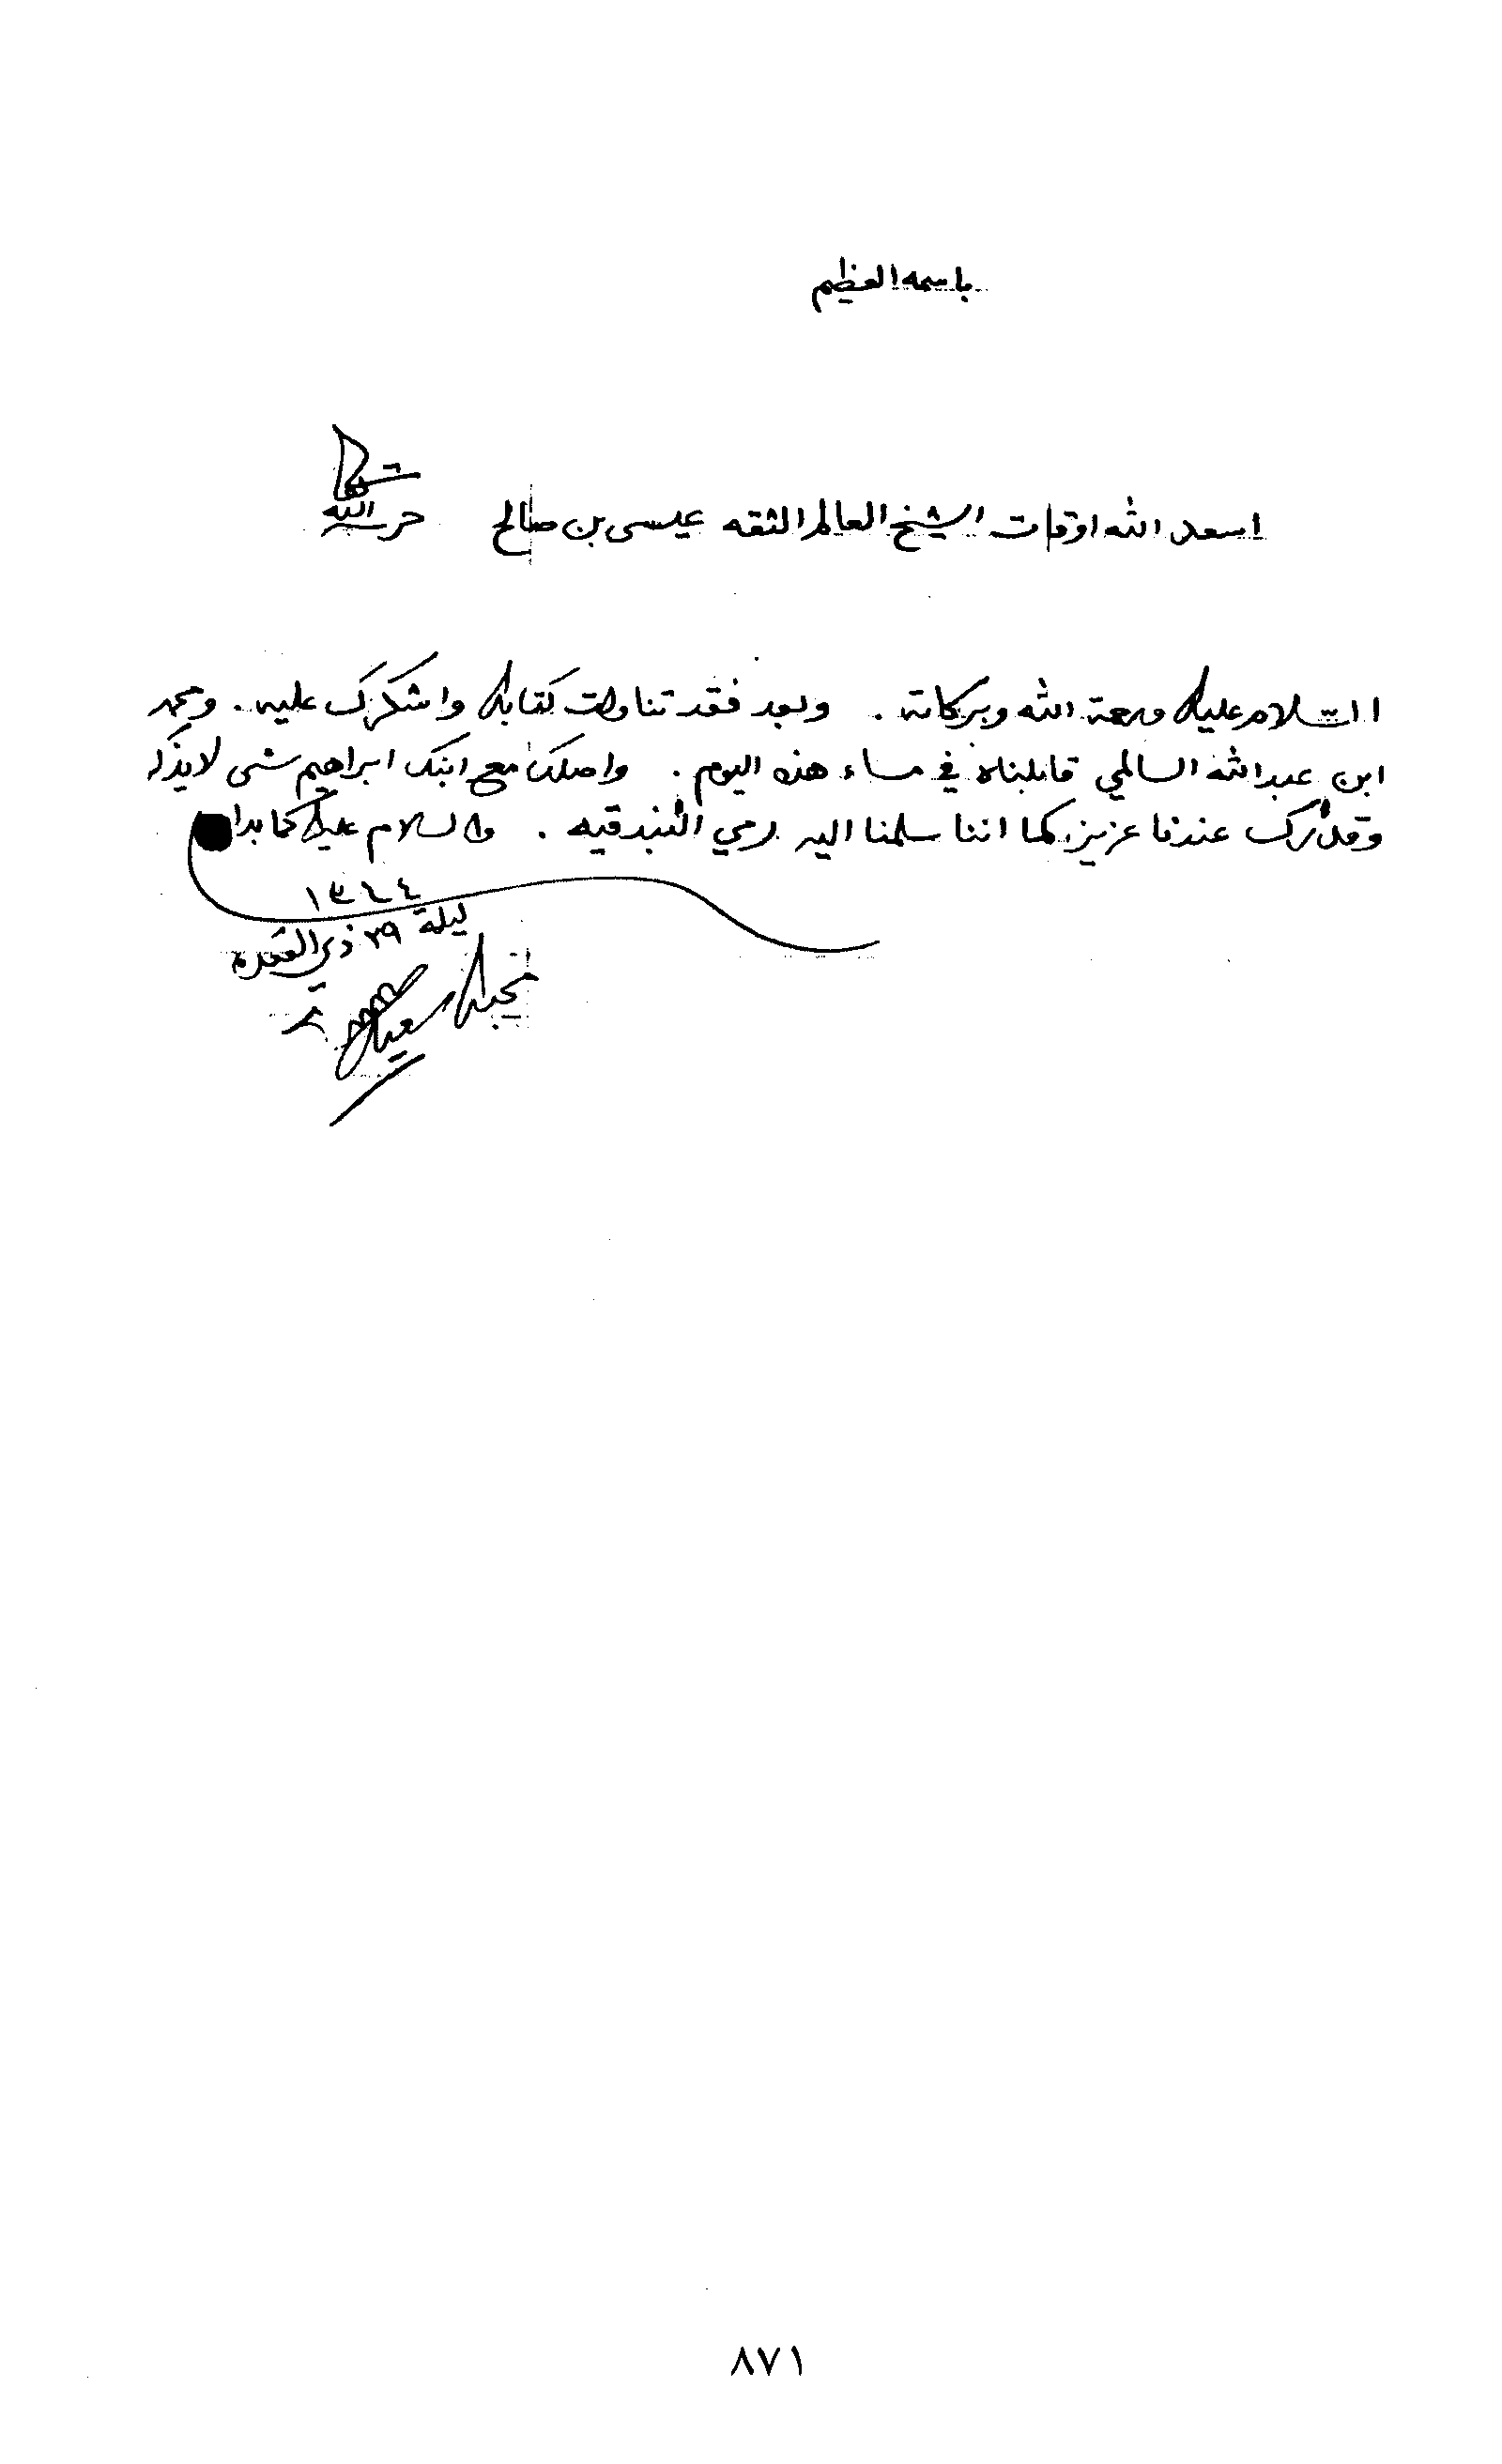 باسمه العظيم
اسعد الله اوقات الشيخ العالم الثقه عيسى بن صالح حرسه الله
السلام عليك ورحمة الله وبركاته . وبعد فقد تناولت كتابك واشكرك عليه . ومحمد
ابن عبدالله السالمي قابلناه في مساء هذه اليوم . واصلك مع ابنك ابراهيم شى لا يذكر
وقدرك عندنا عزيز، كما اننا سلمنا اليه رمي البندقيه . والسلام عليك كما بدا
١٣٤٤
ليلة ٢٩ ذي القعده
محبك سعيد
٨٧١